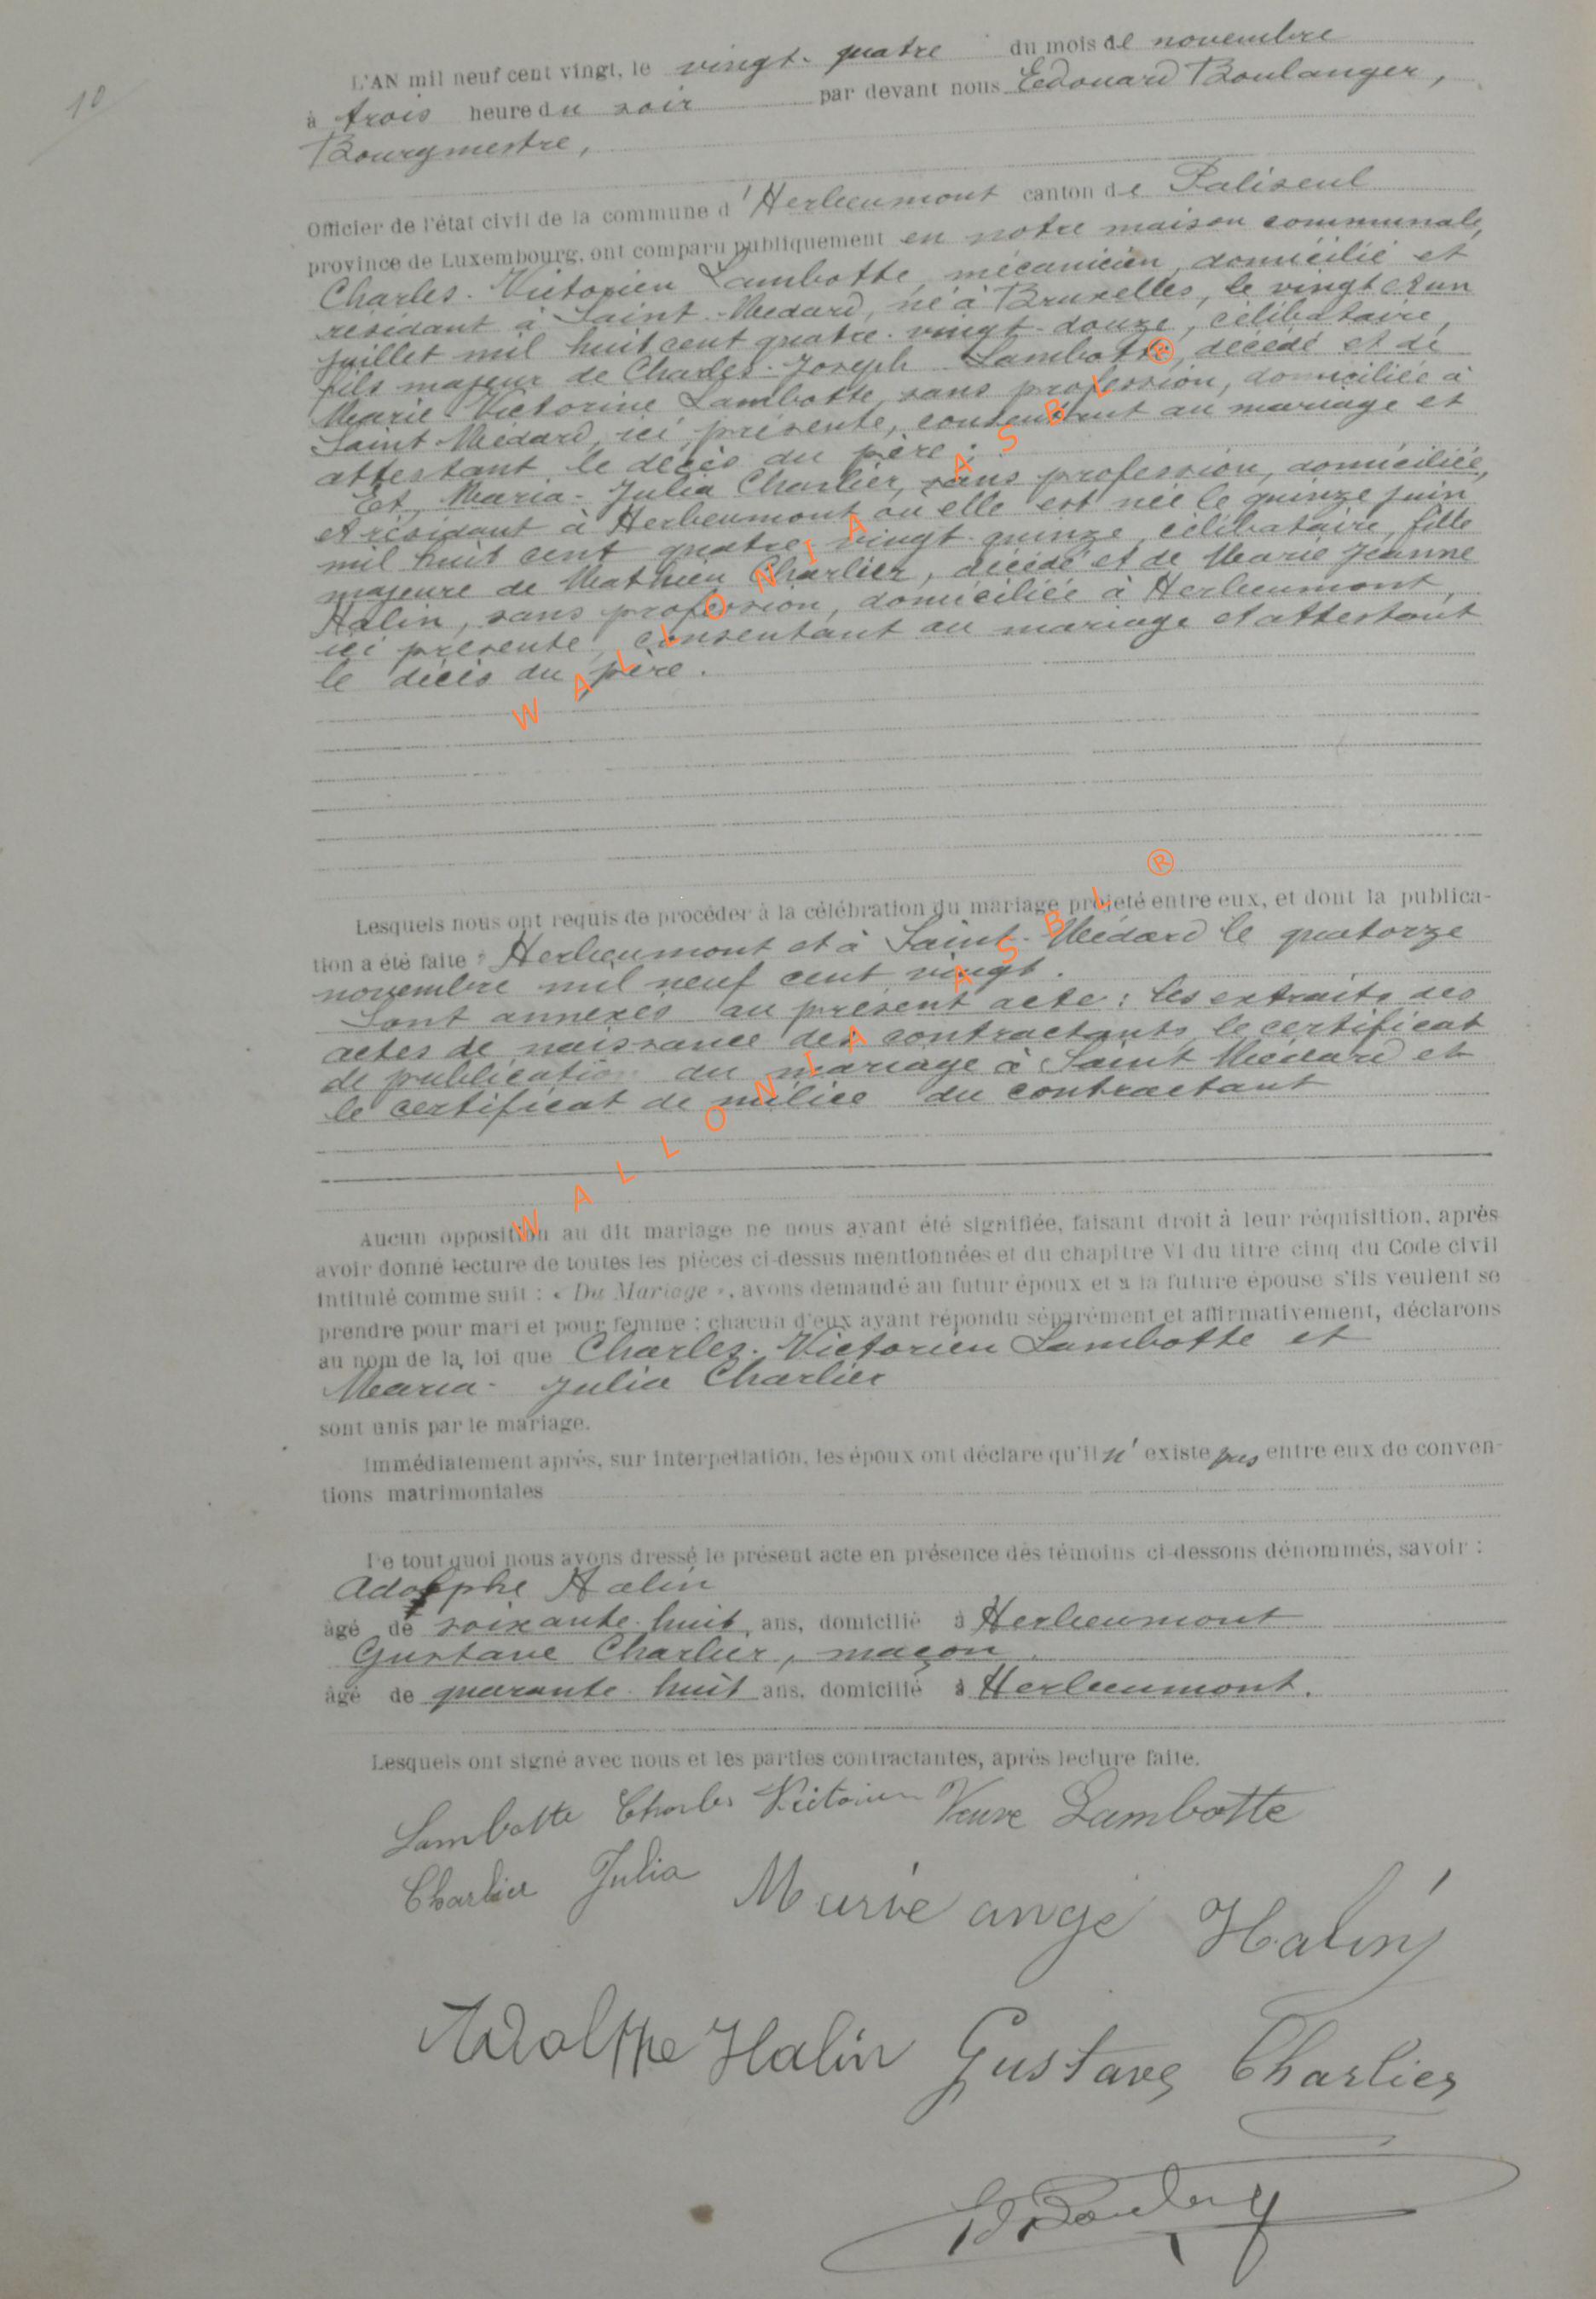 10
L'AN mil neuf cent vingt, le vingt-quatre du mois de novembre
à trois heure du soir par devant nous Edouard Boulanger,
Bourgmestre,
Officier de l'état civil de la commune d'Herbeumont canton de Paliseul
province de Luxembourg, ont comparu publiquement en notre maison communale,
Charles-Victorien Lambotte, mécanicien, domicilié et
résidant à Saint-Médard, né à Bruxelles, le vingt et un
juillet mil huit cent quatre-vingt-douze, célibataire,
fils majeur de Charles-Joseph Lambotte, décédé et de
Marie Victorine Lambotte, sans profession, domiciliée à
Saint-Médard, ici présente, consentant au mariage et
attestant le décès du père;
Et, Maria-Julia Charlier, sans profession, domiciliée,
et résidant à Herbeumont où elle est née le quinze juin
mil huit cent quatre vingt-quinze, célibataire, fille
majeure de Mathieu Charlier, décédé et de Marie Jeanne
Halin, sans profession, domiciliée à Herbeumont,
ici présente, consentant au mariage et attestant
le décès du père.
WALLONIA ASBL ®
Lesquels nous ont requis de procéder à la célébration du mariage projeté entre eux, et dont la publica-
tion a été faite à Herbeumont et à Saint-Médard le quatorze
novembre mil neuf cent vingt.
Sont annexés au présent acte: les extraits des
actes de naissance des contractants, le certificat
de publication du mariage à Saint Médard et
le certificat de milice du contractant
WALLONIA ASBL ®
Aucun opposition au dit mariage ne nous ayant été signifiée, faisant droit à leur réquisition, après
avoir donné lecture de toutes les pièces ci-dessus mentionnées et du chapitre VI du titre cinq du Code civil
intitulé comme suit : « Du Mariage », avons demandé au futur époux et a la future épouse s'ils veulent se
prendre pour mari et pour femme : chacun d'eux ayant répondu séparément et affirmativement, déclarons
au nom de la loi que Charles-Victorien Lambotte et
Maria-Julia Charlier
sont unis par le mariage.
Immédiatement après, sur interpellation, les époux ont déclare qu'il n'existe pas entre eux de conven-
tions matrimoniales
De tout quoi nous avons dressé le présent acte en présence dès témoins ci-dessons dénommés, savoir :
Adolphe Halin
âgé de soixante-huit ans, domicilié à Herbeumont
Gustave Charlier, maçon.
âgé de quarante-huit ans, domicilié à Herbeumont.
Lesquels ont signé avec nous et les parties contractantes, après lecture faite.
Lambotte Charles Victorien Veuve Lambotte
Charlier Julia Marie ange Halin
Adolphe Halin Gustave Charlier
Ed Boulanger